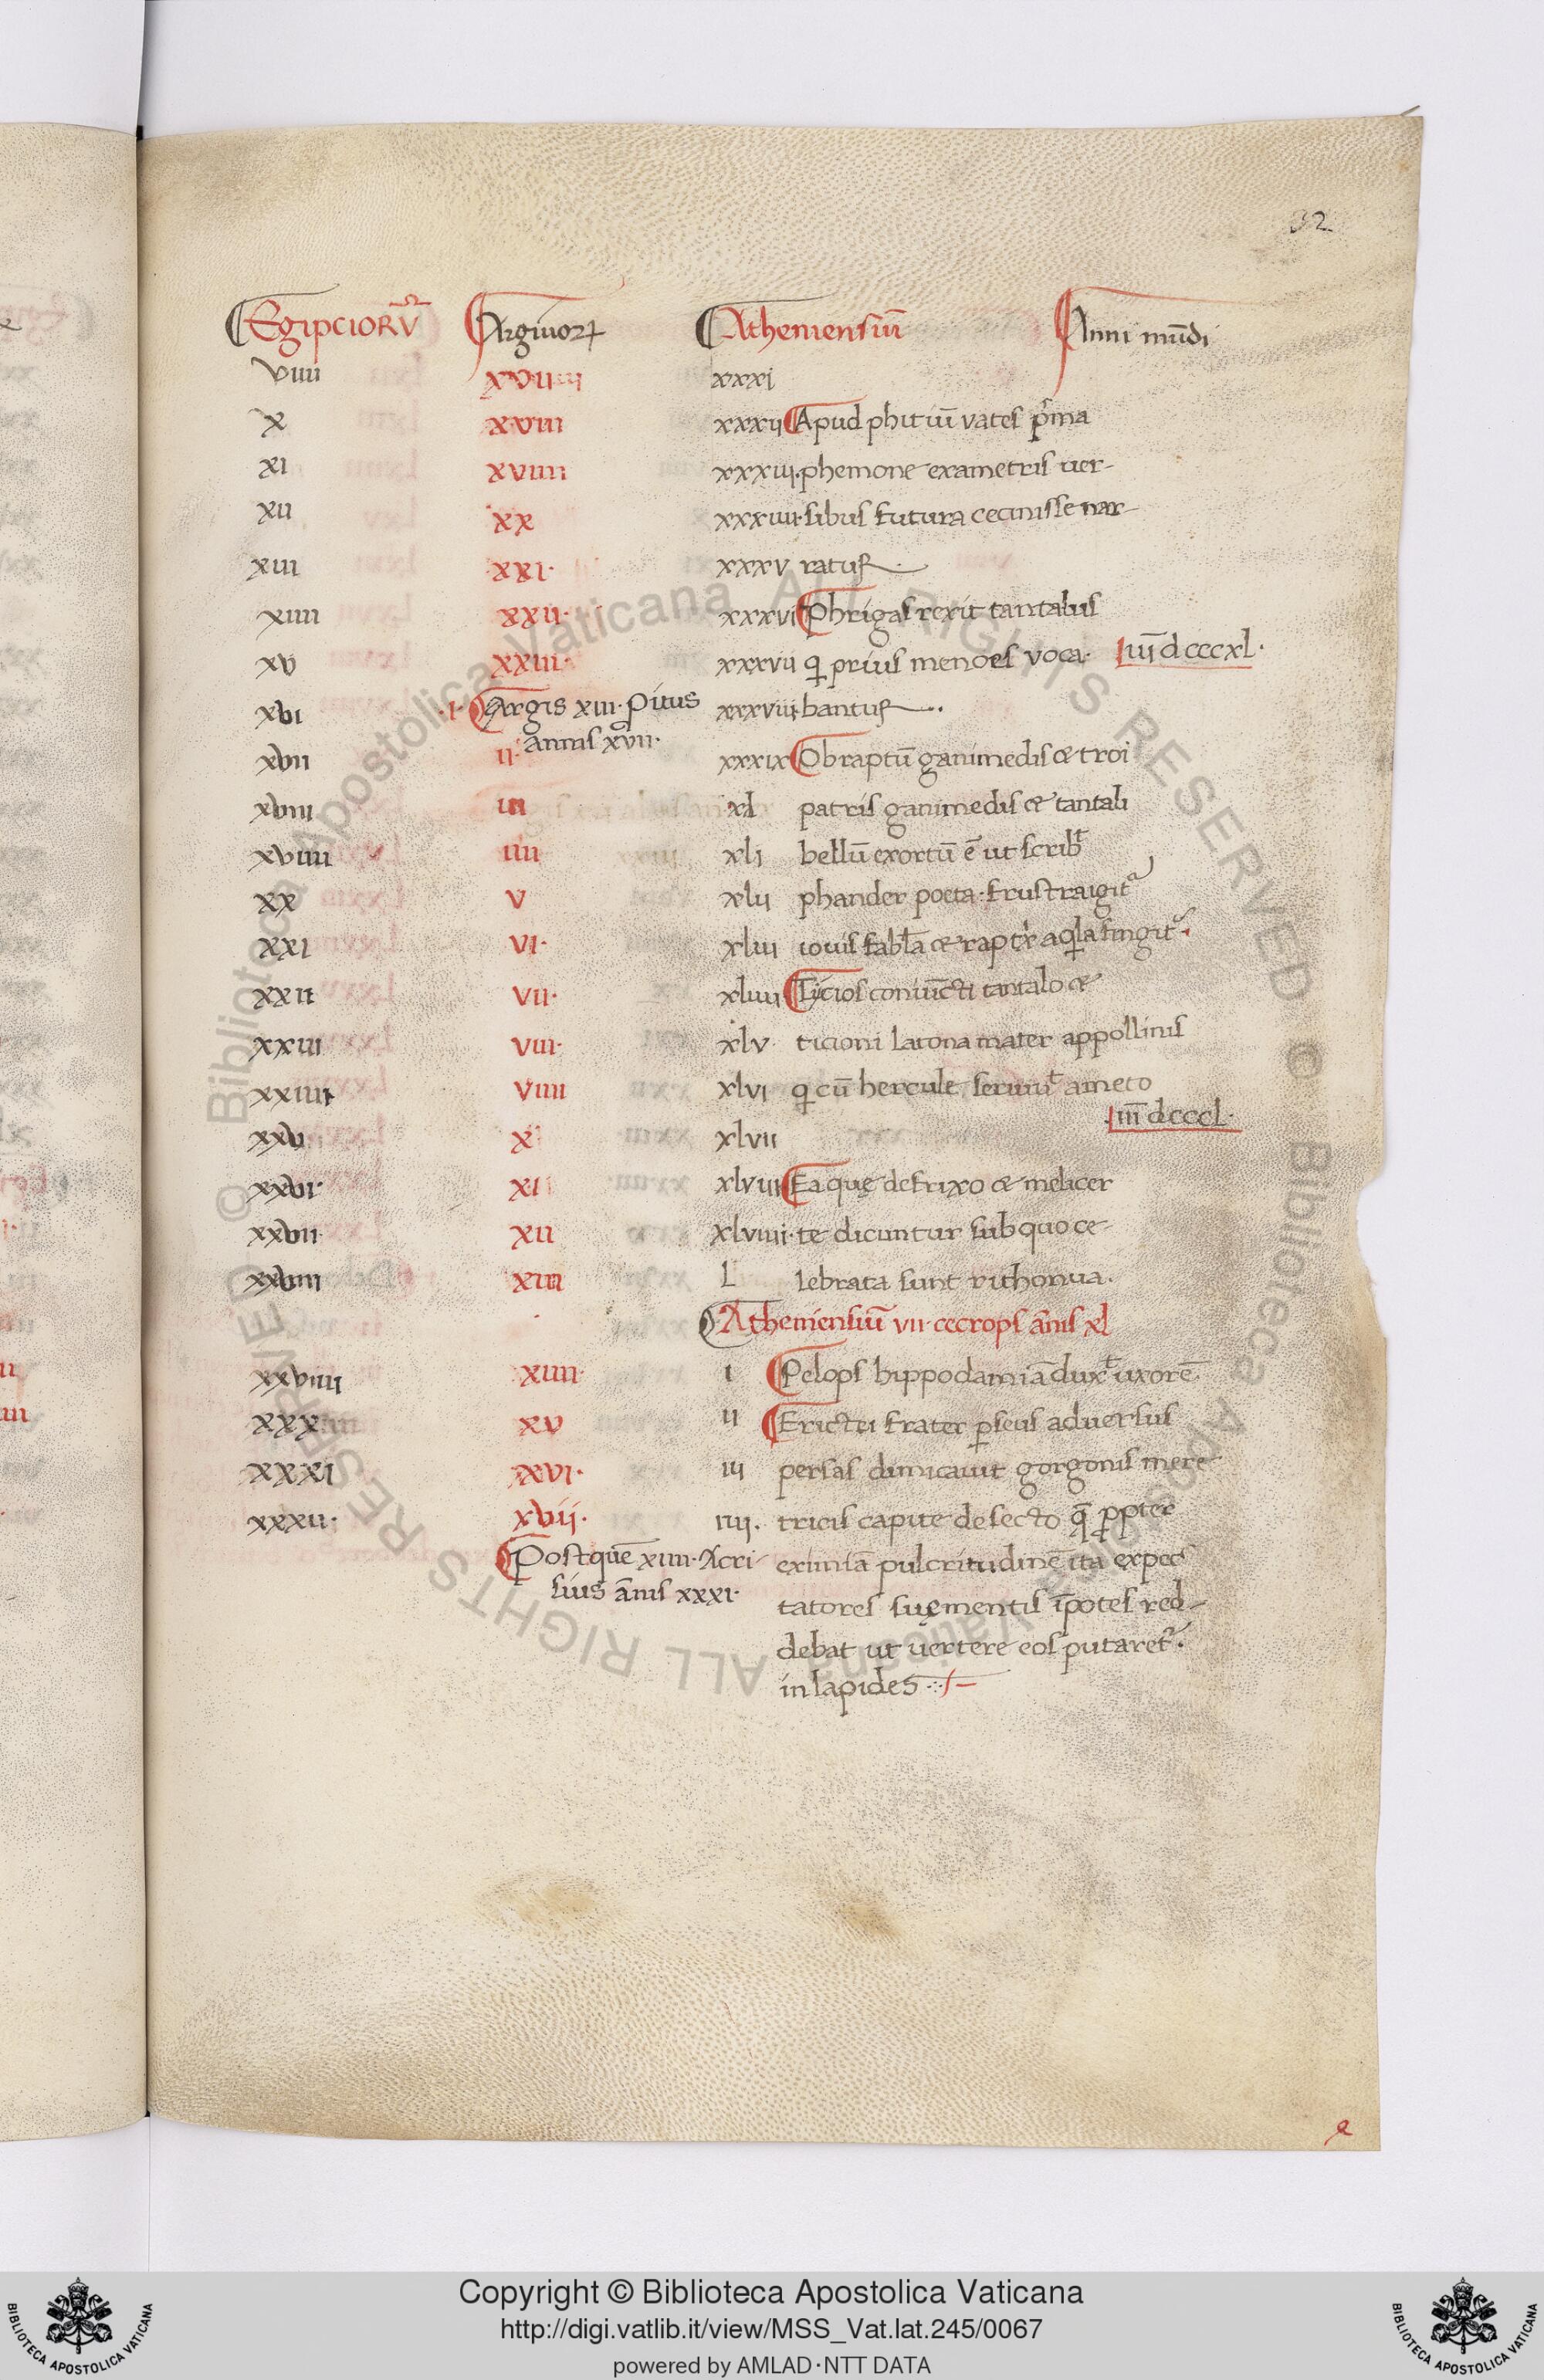 32
Egipciorū Argiuoꝝ Atheniensiū Anni mūdi
viiii xviiii xxxi
x xviii xxxii Apud phitiū vates pͥma
xi xviiii xxxiii· phemone exametris uer-
xii xx xxxiiii· sibus futura cecinisse nar-
xiii xxi· xxxv ratur
xiiii xxii· xxxvi Phrigas rexit tantalus
xv xxiii· xxxvii qi prius menoes voca· iii̅ dcccxl·
xvi ·i· Argis xiii· Pitus xxxviii· bantur··
annis xvii·
xvii ii· xxxix Ob raptū ganimedis & troi
xviii iii xl patris ganimedis & tantali
xviiii iiii xli bellū exortū ē ut scribᵗ
xx v xlii phander poeta· frustra igitᵃ
xxi vi· xliii iouis fabła & raptͥx aqͥla fingitᵃ·
xxii vii· xliiii Lycios coniūcti tantalo &
xxiii viii· xlv· ticioni latona mater appollinis
xxiiii viiii xlvi qi cū hercule seruiuᵗ ameto
iii̅ dcccl·
xxv x xlvii
xxvi· xi xlviii Ea quę de frixo & melicer
xxvii· xii xlviiii· te dicuntur sub quo ce-
xxviii xiii L lebrata sunt rithonua·
Atheniensiū vii· cecrops ānis xl
xxviiii xiiii· i Pelops hippodamiā duxᵗ uxorē
xxx xv ii Erictei frater ꝑseus aduersus
xxxi xvi· iii persas dimicauit gorgonis mere
xxxii· xvii· iiii. tricis capite desecto q̄ ꝓpter
Postquē xiiii· Acri- eximiā pulcritudinē ita expec
sius ānis xxxi· tatores suę mentis īpotes red-
debat ut uertere eos putaretᵃ·
in lapides
a
© Biblioteca Apostolica Vaticana ALL RIGHTS RESERVED © Biblioteca Apostolica Vaticana ALL RIGHTS RESERVED
BIBLIOTECA APOSTOLICA VATICANA
Copyright © Biblioteca Apostolica Vaticana
http://digi.vatlib.it/view/MSS_Vat.lat.245/0067
powered by AMLAD·NTT DATA
BIBLIOTECA APOSTOLICA VATICANA